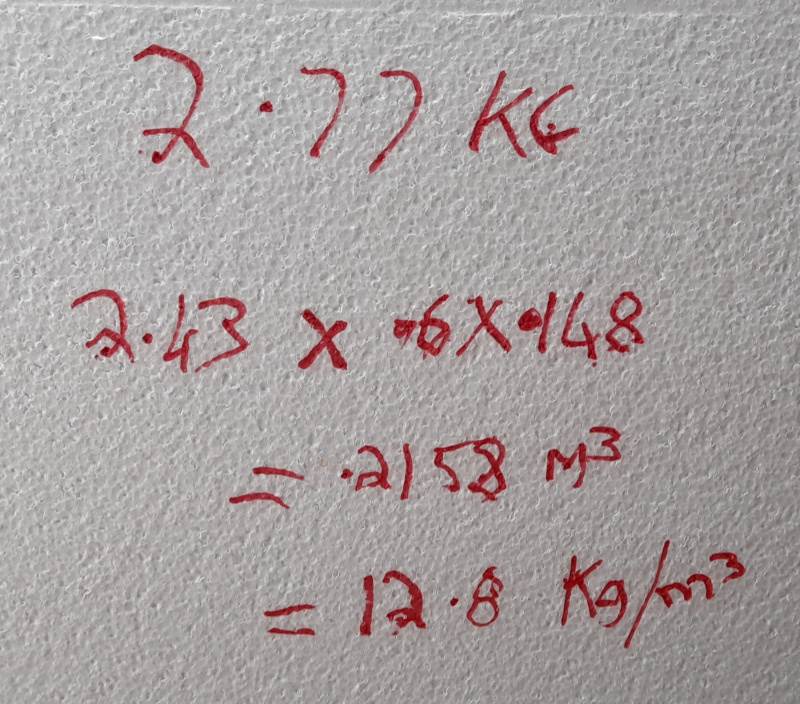 2.77 KG
2.43 x .6 x .148
= .2158 m³
= 12.8 Kg/m³